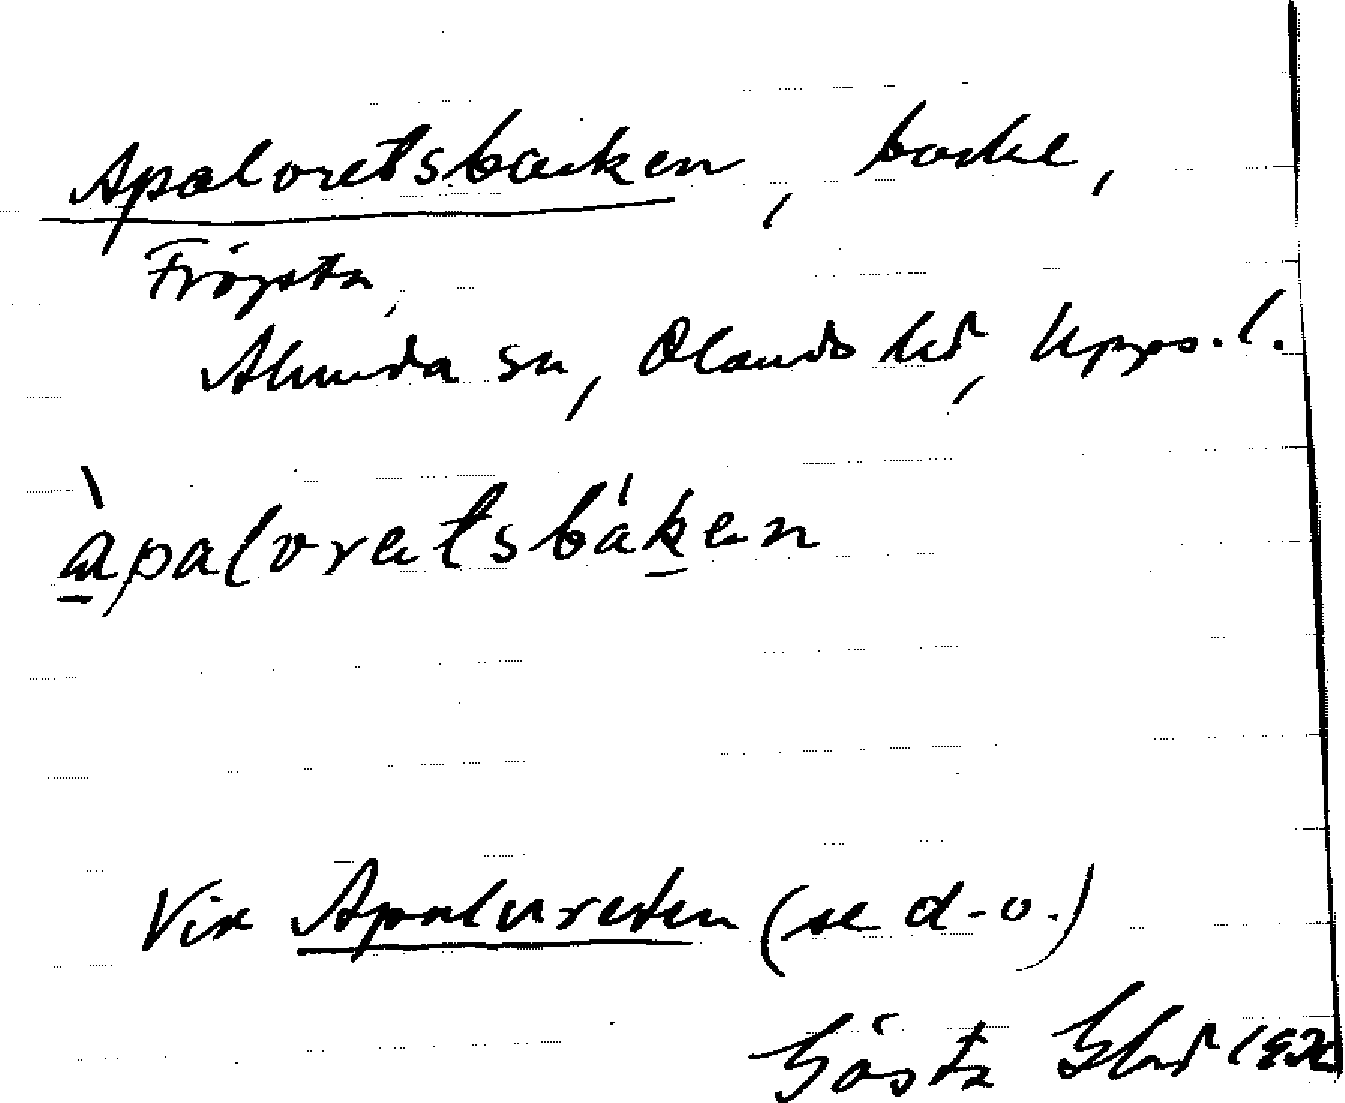 Apaloretsbacken, backe,
Fröysta,
Alunda sn, Olands hd, Upps. l.
àpalvretsbáken
Vid Apalvreten (se d-o.)
Gösta